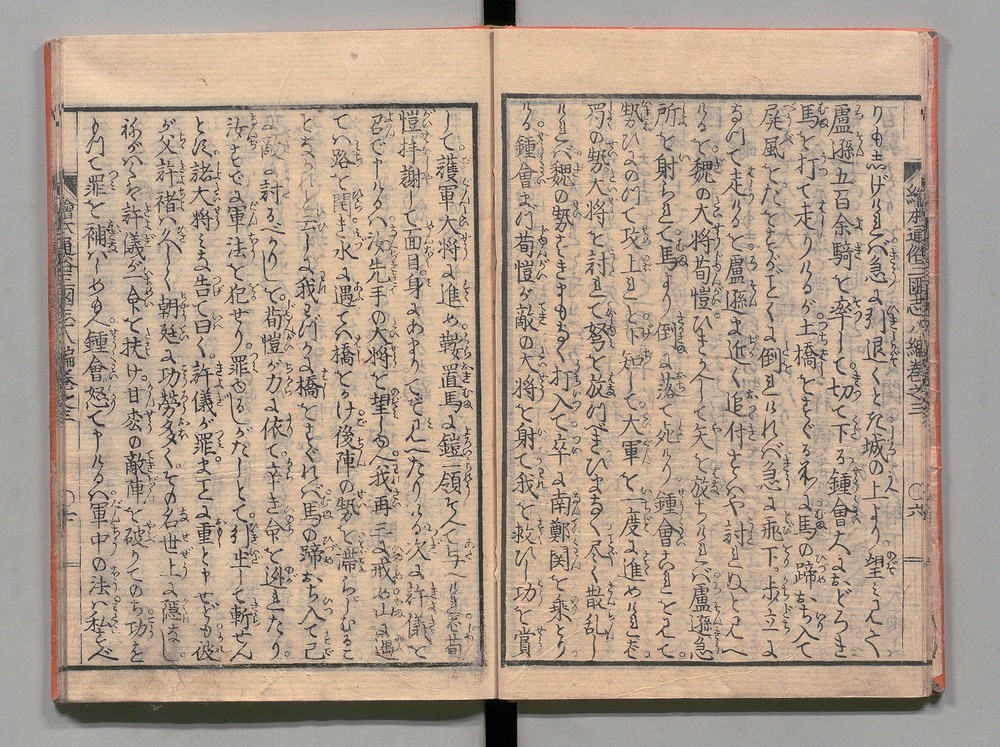 りも志げければ急に引退くとた城の上より望ミ見て
盧遜五百余騎を率して切て下る鍾會大におどろき
馬を打て走りけるが土橋をすぐる時に馬の蹄おち入て
屏風をたをすがごとくに倒れければ急に飛下り歩立に
なつて走けると盧遜ま近く追付すでに討れぬと見へ
ける魏の大将荀愷ひきかへして矢を放ちければ盧遜急
所を射られて馬より倒に落て死けり鍾會これを見て
勢ひにのつて攻上れと下知して大軍を一度に進めければ
蜀の勢大将を討れて弩を放つべきひまもなく尽く散乱し
ければ魏の勢ときもなく打入て卒に南鄭関を乗とり
ける鍾會まづ荀愷が敵の大将を射て我を救ひし功を賞
して護軍大将に進め鞍置馬に鎧一領そへて与へければ荀
愷拝謝して面目身にあまりてぞ見へたりける次に許儀を
召て申けるハ汝先手の大将を望しゆへ我再三に戒め山に遇
ては路を開き水に遇てハ橋をかけ後陣の勢を滞らしむること
となかれと云しに我もつハら橋をすぐれバ馬の蹄おち入て已
に敵に討るべかりしを荀愷が力に依て辛き命を逃れたり
汝すでに軍法を犯せり罪ゆるしがたしとて引出して斬せん
とに諸大将ミな告て曰く許儀が罪まことに重しと申せども彼
が父許褚ハ久しく朝廷に功労多くその名世上に隠れな
し祢がハくハ許儀が一命を扶け甘松の敵陣を破りてのち功を
もつて罪を補ハしめ玉へ鍾會怒て申けるハ軍中の法ハ私をべ
繪本通俗三國志八編巻之三
〇六
繪本通俗三國志八編巻之三